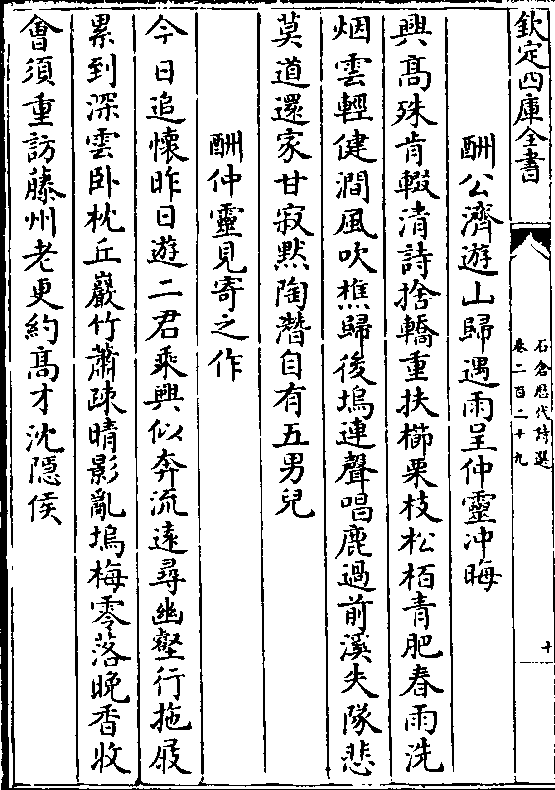 欽定四庫全書
石倉歴代詩選
卷二百二十九
十
酬公濟遊山歸遇雨呈仲靈冲晦
興髙殊肯輟清詩捨轎重扶櫛栗枝松栢青肥春雨洗
烟雲輕健澗風吹樵歸後塢連聲唱鹿過前溪失隊悲
莫道還家甘寂黙陶濳自有五男兒
酬仲靈見寄之作
今日追懷昨日遊二君乘興似奔流逺尋幽壑行拖屐
累到深雲卧枕丘巖竹蕭疎晴影亂塢梅零落晚香收
會須重訪藤州老更約髙才沈隠侯